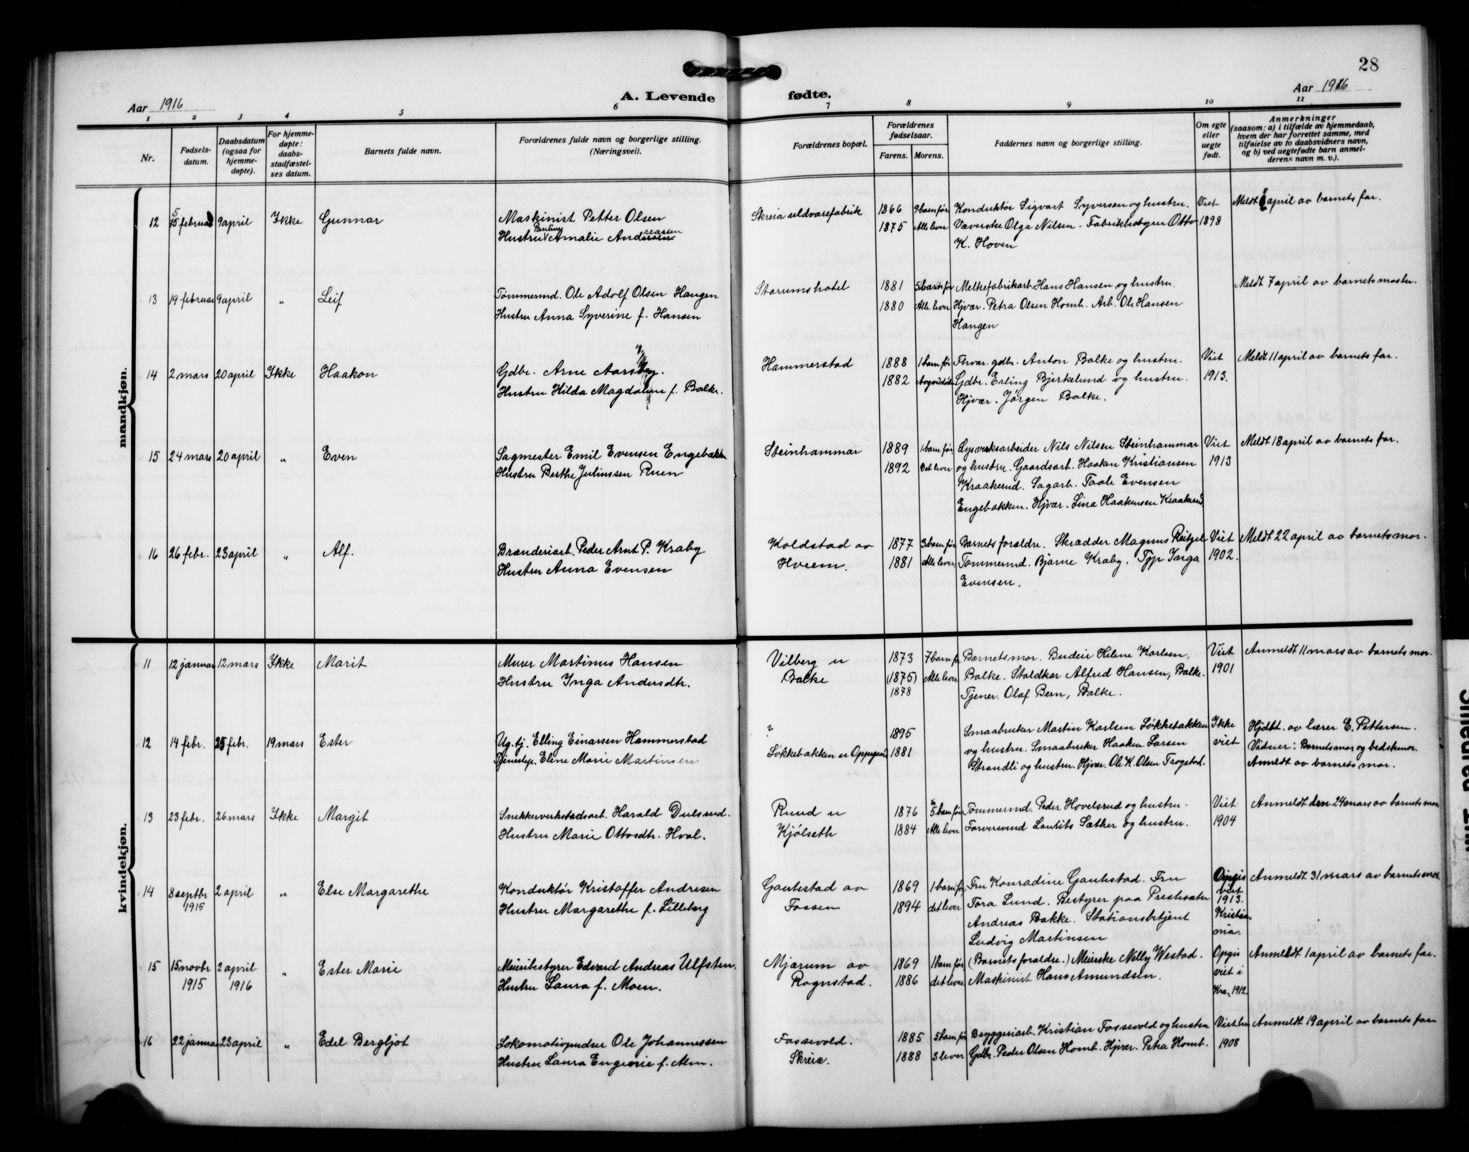 28
Aar 1916
A. Levende fødte.
Aar 1916
1 2 3 4 5 6 7 8 9 10 11
Nr.
Fødsels-
datum.
Daabsdatum
(ogsaa for
hjemme-
døpte).
For hjemme-
døpte:
daabs-
stadfæstel-
ses datum.
Barnets fulde navn.
Forældrenes fulde navn og borgerlige stilling.
(Næringsvei).
Forældrenes bopæl.
Forældrenes
fødselsaar.
Farens. Morens.
Faddernes navn og borgerlige stilling.
Om egte
eller
uegte
født.
Anmerkninger
(saasom: a) i tilfælde av hjemmedaab,
hvem der har forrettet samme, med
tilføielse av to daabsvidners navn,
og b) ved uegtefødte barn anmel-
derens navn m. v.).
mandkjøn.
12 5 februar 9 april Ikke Gunnar
Maskinist Petter Olsen
Hustru Pauline Amalie Andreassen
Skreia uldvarefabrik
1866 9 barn før
1875 Alle lever
Konduktør Sigvart Syversen og hustru.
Væverske Olga Nilsen. Fabrikbestyrer Otto
K. Hoven
Viet
1898
Meldt 6 april av barnets far.
13 19 februar 9 april „ Leif
Tømmermd. Ole Adolf Olsen Haugen
Hustru Anna Syverine f. Hansen
Starumshotel
1881 5 barn før
1880 Alle lever
Melkefabrikarb. Hans Hansen og hustru.
Hjvær. Petra Olsen Homb. Arb. Ole Hansen
Haugen
Meldt 7 april av barnets moster.
14 2 mars 20 april Ikke Haakon
Gdbr. Arne Aarsby.
Hustru Hilda Magdalena f. Balke.
Hammerstad
1888 1 barn før
1882
Forvær. gdbr. Anton Balke og hustru.
Gdbr. Erling Bjerkelund og hustru.
Hjvær. Jørgen Balke.
Viet
1913.
Meldt 11 april av barnets far.
15 24 mars 20 april „ Even
Sagmester Emil Evensen Engebakken
Hustru Berthe Juliussen Ruen
Steinhammar
1889 1 barn før
1892 Det lever
Nils Nilsen Steinhammar
og hustru. Gaardsarb. Haakon Kristiansen
Kraakerud. Sagarb. Paale Evensen
Engebakken. Hjvær. Lina Haakensen Kraakerud
Viet
1913
Meldt 18 april av barnets far.
16 26 febr. 23 april „ Alf.
Brænderiarb. Peder Arnt P. Kraby
Hustru Anna Evensen
Koldstad av
Hveem.
1877 3 barn før
1881 Alle lever
Barnets forældre. Skrædder Magnus
Tømmermd. Bjarne Kraby. Tjp Inga
Evensen.
Viet
1902.
Meldt 22 april av barnets mor.
kvindekjøn.
11 12 januar 12 mars Ikke Marit
Murer Martinus Hansen
Hustru Inga Andersdtr.
Vilberg u
Balke
1873 7 barn før
(1875) Alle lever
1878
Barnets mor. Budeie Helene Karlsen,
Balke. Staldkar Alfred Hansen, Balke.
Tjener. Olaf Bern, Balke.
Viet
1901
Anmeldt 11 mars av barnets mor.
12 14 febr. 25 febr. 19 mars Ester
Ug. tj. Elling Einarsen Hammerstad
Elene Marie Martinsen
?
Løkkebakken u Oppegaard
1895
1881
Smaabruker Martin Karlsen Løkkebakken
og hustru. Smaabruker Haaken Larsen
Strandli og hustru. Hjvær. Ole K. Olsen Trogstad.
Ikke
viet
Hjdbt. av lærer E. Pettersen.
Vidner: Barnets mor og bedstemor.
Anmeldt av barnets mor.
13 23 febr. 26 mars Ikke Margit
Snekkerverkstadsarb. Harald Dulsrud.
Hustru Marie Ottosdtr. Hval.
Ruud u
Kjølseth
1876 5 barn før
1884 Alle lever
Tømmermd. Peder Hovelsrud og hustru.
Farversvend Lauritz Sæther og hustru.
Viet
1904
Anmeldt den 24 mars av barnets mor
14 8 septbr 1915 2 april „ Else Margarethe
Konduktør Kristoffer Andresen
Hustru Margarethe f. Lilleberg
Gautestad av
Fossen
1869 1 barn før
1894 det lever
Fru Konradine Gautestad. Fru
Tora Lund. Bestyrer paa Prestesæter
Andreas Bakke. Stationsbetjent
Ludvig Martinsen
Opgis
viet
1913.
Kristia
nia.
Anmeldt 31 mars av barnets mor
15 15 novbr 1915 2 april 1916 „ Ester Marie
Meieribestyrer Edvard Andreas Ulfsten.
Hustru Laura f. Moen.
Mjørum av
Rognstad.
1869 1 barn før
1886 det lever
(Barnets forældre.) Meierske Nelly Westad.
Maskinist Hans Amundsen.
Opgis
viet i
Kra., 1912
Anmeldt 1 april av barnets far.
16 22 januar 23 april „ Edel Bergljot
Lokomotivpudser Ole Johannessen
Hustru Laura Engvarie f. Alm.
Fossevold.
Skreia.
1885 5 barn før
1888 3 lever
Bryggeriarb. Kristian Fossevold og hustru
Gdbr. Peder Olsen Homb. Hjvær. Petra Homb.
Viet
1908
Anmeldt 19 april av barnets far